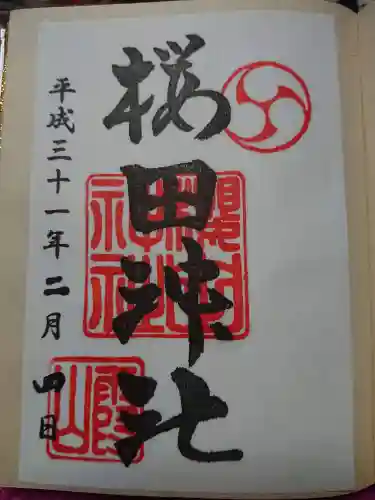 桜田神社
櫻田
神社
平成三十一年二月四日
霞山